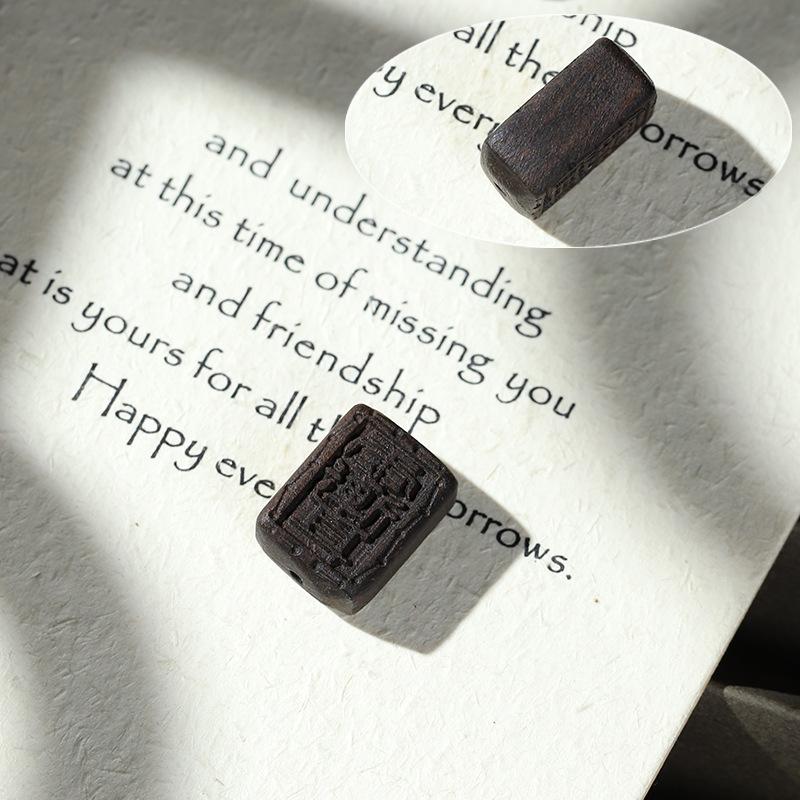 and understanding
at this time of missing you
and friendship
at is yours for all
Happy eve orrows.
all the
y every orrows